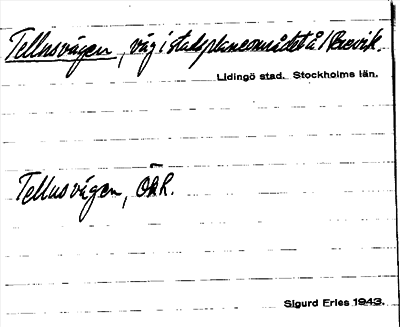 Tellusvägen, väg i stadsplaneområdet å Brevik.
Lidingö stad. Stockholms län.
Tellusvägen, ökR.
Sigurd Eries 1943.